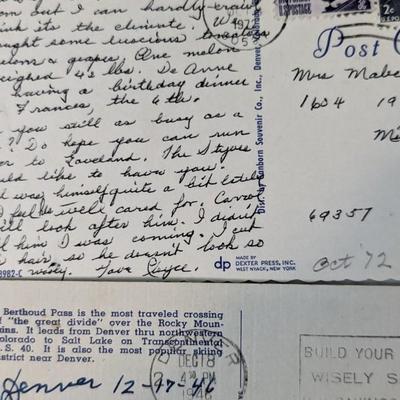 but I can hardly
think its the climate. W
bought some luscious tomatoes
melons & grapes. One melon
weighed 43 lbs. De Anne
having a birthday dinner
Frances, the 6th.
you still as busy as a
? Do hope you can run
or to Loveland. The
would like to have you.
was himself quite a bit
feels well cared for. Carrol
will look after him. I didn't
him I was coming. I cut
hair, so he doesn't look so
wooly. Love
8982-C
Dist. by Sanborn Souvenir Co., Inc., Denver,
dp
MADE BY
DEXTER PRESS, INC.
WEST NYACK, NEW YORK
1972
POSTAGE
2c
Post C
Mrs Mabe
1604 19
Mi
69357
Oct '72
Berthoud Pass is the most traveled crossing
of "the great divide" over the Rocky Moun-
ains. It leads from Denver thru northwestern
Colorado to Salt Lake on Transcontinental
U.S. 40. It is also the most popular skiing
district near Denver.
Denver 12-17-46
DEC 18
4 PM
1946
BUILD YOUR
WISELY S